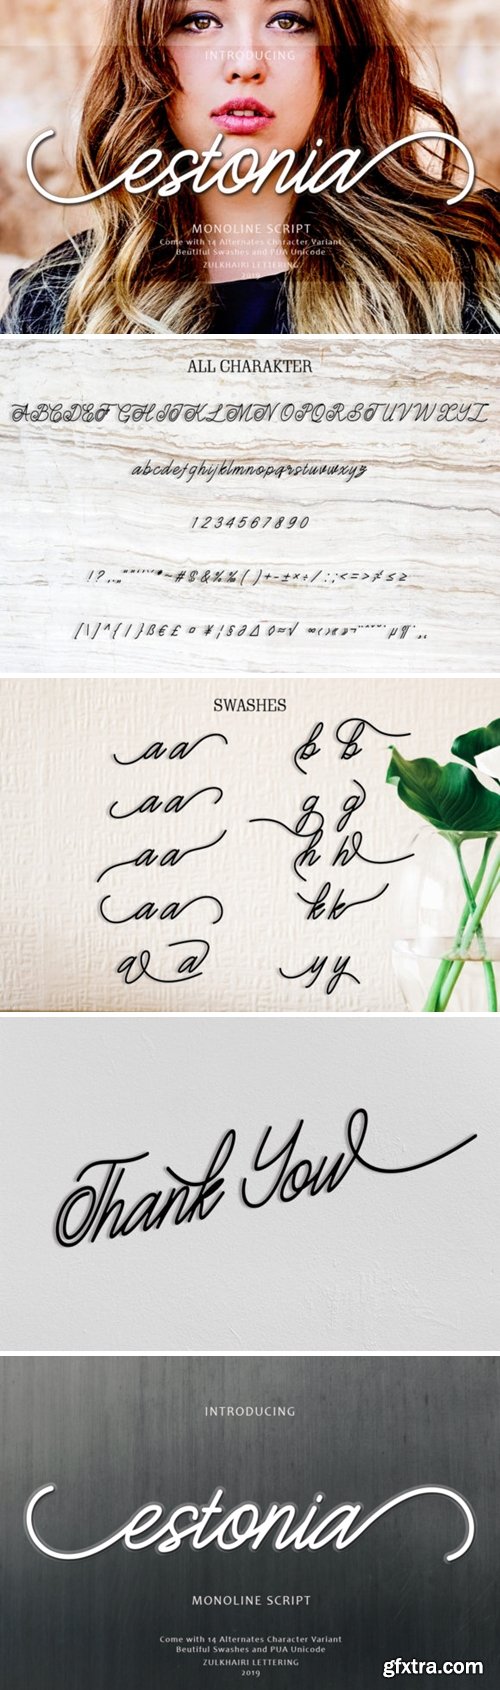 INTRODUCING
estonia
MONOLINE SCRIPT
Come with 14 Alternates Character Variant
Beutiful Swashes and PUA Unicode
ZULKHAIRI LETTERING
2019
ALL CHARAKTER
ABCDEFGHIJKLMNOPQRSTUVWXYZ
abcdefghijklmnopqrstuvwxyz
1234567890
SWASHES
a a b b
a a g g
a a h h
a a k k
a a y y
Thank You
INTRODUCING
estonia
MONOLINE SCRIPT
Come with 14 Alternates Character Variant
Beutiful Swashes and PUA Unicode
ZULKHAIRI LETTERING
2019
gfxtra.com